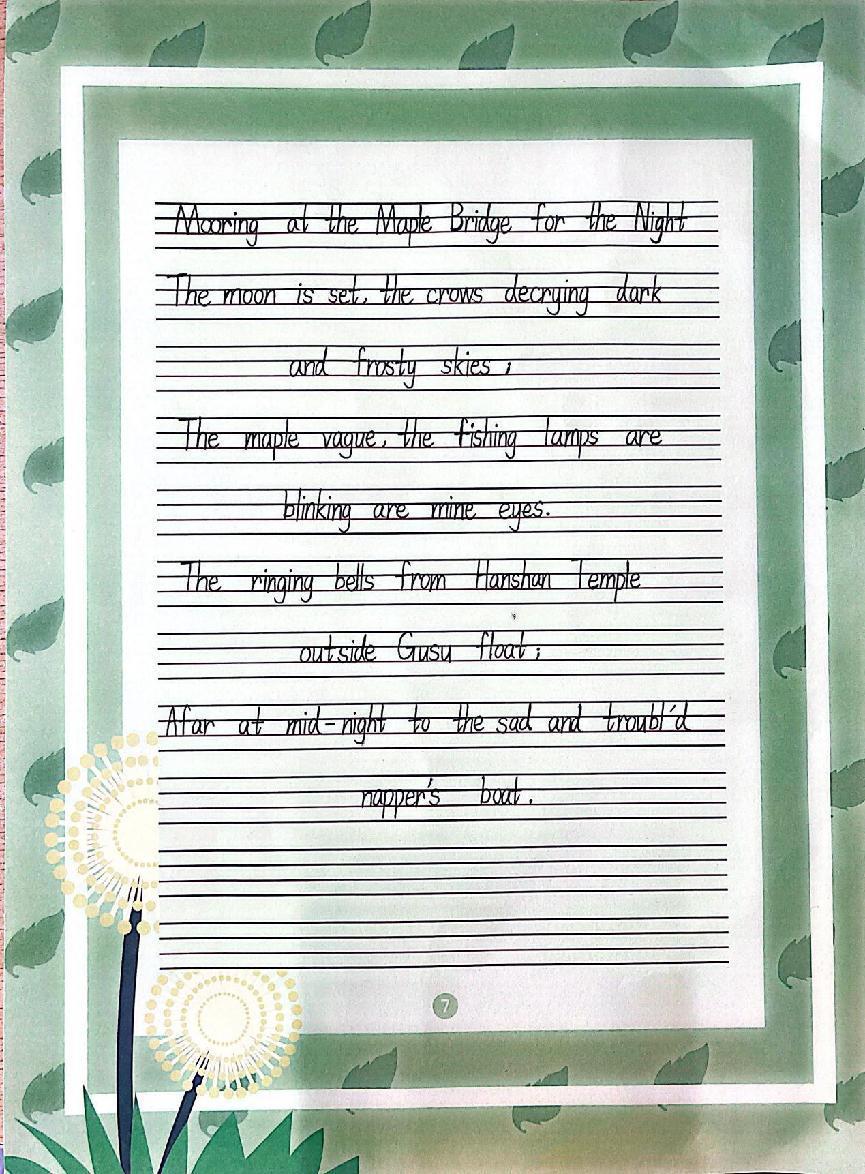 Mooring at the Maple Bridge for the Night
The moon is set, the crows decrying dark
and frosty skies;
The maple vague, the fishing lamps are
blinking are mine eyes.
The ringing bells from Hanshan Temple
outside Gusu float;
Afar at mid-night to the sad and troubl'd
napper's boat.
7